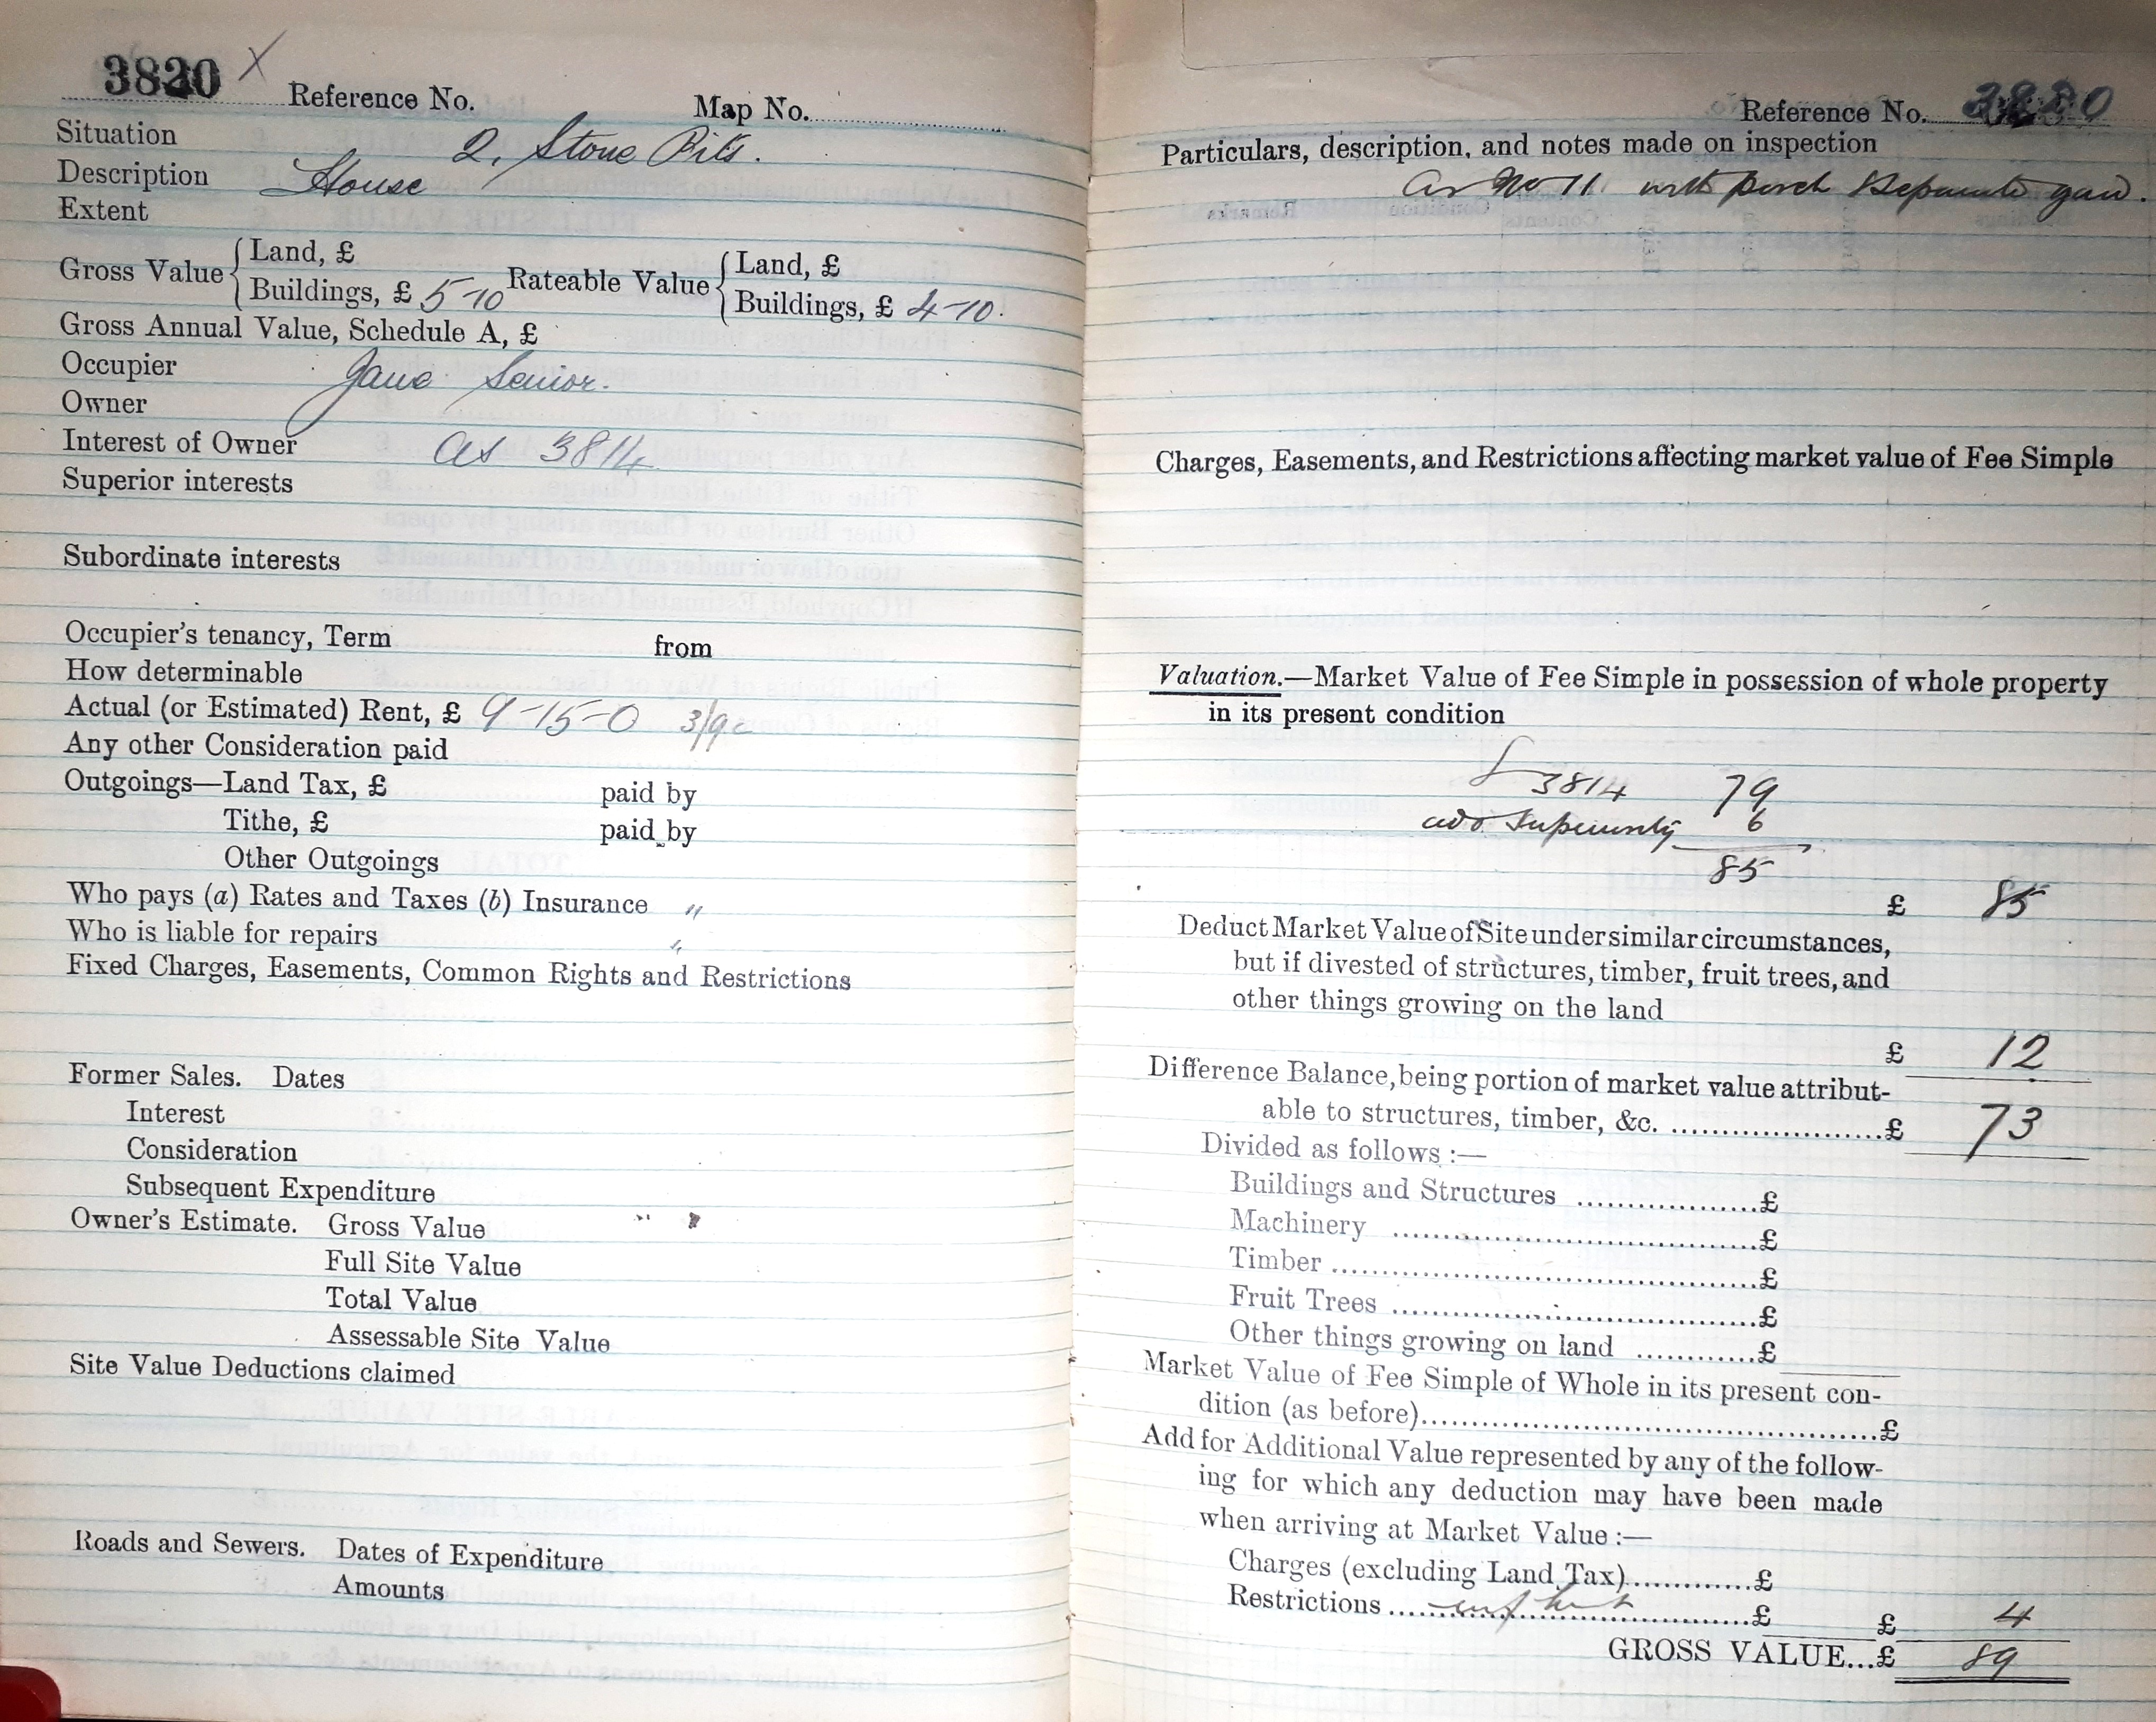 3820 X Reference No. Map No.
Situation 2, Stone Pits.
Description House
Extent
Gross Value { Land, £
Buildings, £ 5-10
Rateable Value { Land, £
Buildings, £ 4-10.
Gross Annual Value, Schedule A, £
Occupier Jane Senior.
Owner
Interest of Owner as 3814
Superior interests
Subordinate interests
Occupier's tenancy, Term from
How determinable
Actual (or Estimated) Rent, £ 9-15-0 3/9
Any other Consideration paid
Outgoings—Land Tax, £ paid by
Tithe, £ paid by
Other Outgoings
Who pays (a) Rates and Taxes (b) Insurance "
Who is liable for repairs "
Fixed Charges, Easements, Common Rights and Restrictions
Former Sales. Dates
Interest
Consideration
Subsequent Expenditure
Owner's Estimate. Gross Value
Full Site Value
Total Value
Assessable Site Value
Site Value Deductions claimed
Roads and Sewers. Dates of Expenditure
Amounts
Reference No. 3820
Particulars, description, and notes made on inspection
as No 11 with porch & separate
Charges, Easements, and Restrictions affecting market value of Fee Simple
Valuation.—Market Value of Fee Simple in possession of whole property
in its present condition
3814 79
6
85
£ 85
Deduct Market Value of Site under similar circumstances,
but if divested of structures, timber, fruit trees, and
other things growing on the land
£ 12
Difference Balance, being portion of market value attribut-
able to structures, timber, &c. ....................£ 73
Divided as follows :—
Buildings and Structures ..................£
Machinery ..................£
Timber ..................£
Fruit Trees ..................£
Other things growing on land ............£
Market Value of Fee Simple of Whole in its present con-
dition (as before)..................£
Add for Additional Value represented by any of the follow-
ing for which any deduction may have been made
when arriving at Market Value :—
Charges (excluding Land Tax)............£
Restrictions ..................£ £ 4
GROSS VALUE...£ 89